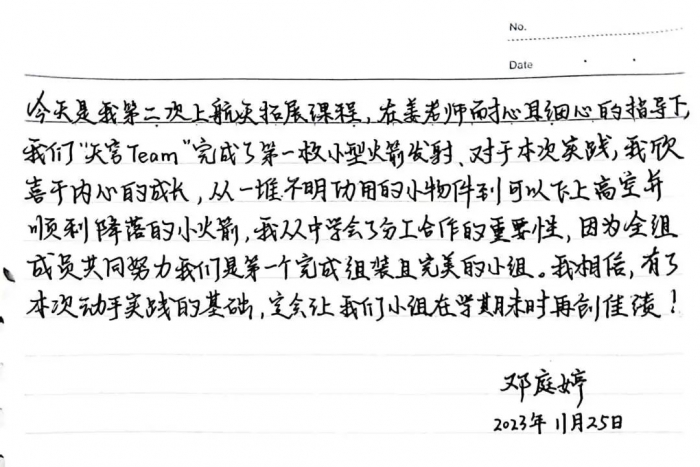 No.
Date
今天是我第二次上航天拓展课程，在姜老师耐心且细心的指导下，
我们“天宫Team”完成了第一枚小型火箭发射、对于本次实践，我欣
喜于内心的成长，从一堆不明功用的小物件到可以飞上高空并
顺利降落的小火箭，我从中学会了分工合作的重要性，因为全组
成员共同努力我们是第一个完成组装且完美的小组。我相信，有了
本次动手实践的基础，定会让我们小组在学期末时再创佳绩！
邓庭婷
2023年11月25日